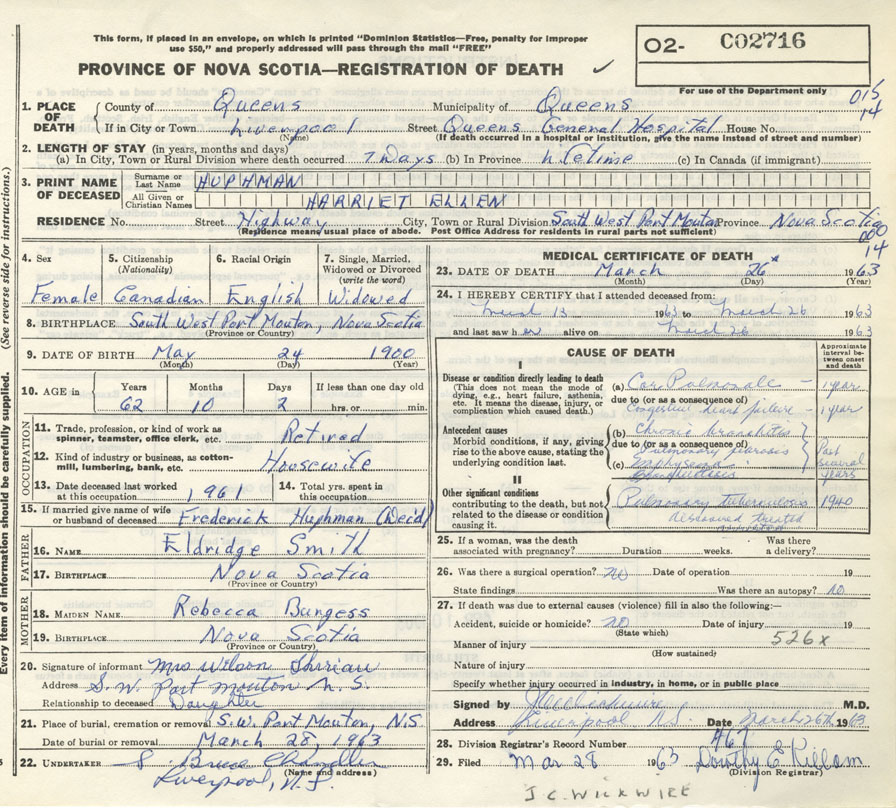 This form, if placed in an envelope, on which is printed "Dominion Statistics—Free, penalty for improper
use $50," and properly addressed will pass through the mail "FREE"
PROVINCE OF NOVA SCOTIA—REGISTRATION OF DEATH ✓
O2- C02716
For use of the Department only
015
14
1. PLACE OF DEATH County of Queens Municipality of Queens
If in City or Town Liverpool Street Queens General Hospital House No.
(Name) (If death occurred in a hospital or institution, give the name instead of street and number)
2. LENGTH OF STAY (in years, months and days)
(a) In City, Town or Rural Division where death occurred 7 Days (b) In Province Lifetime (c) In Canada (if immigrant)
3. PRINT NAME OF DECEASED Surname or Last Name HUPHMAN
All Given or Christian Names HARRIET ELLEN
RESIDENCE No. Street Highway City, Town or Rural Division South West Port Mouton Province Nova Scotia
(Residence means usual place of abode. Post Office Address for residents in rural parts not sufficient)
000
14
(See reverse side for instructions.)
Every item of information should be carefully supplied.
4. Sex 5. Citizenship (Nationality) 6. Racial Origin 7. Single, Married, Widowed or Divorced (write the word)
Female Canadian English Widowed
8. BIRTHPLACE South West Port Mouton, Nova Scotia
(Province or Country)
9. DATE OF BIRTH May 24 1900
(Month) (Day) (Year)
10. AGE in Years Months Days If less than one day old
62 10 2 hrs. or min.
OCCUPATION
11. Trade, profession, or kind of work as spinner, teamster, office clerk, etc. Retired
12. Kind of industry or business, as cotton-mill, lumbering, bank, etc. Housewife
13. Date deceased last worked at this occupation 1961 14. Total yrs. spent in this occupation
15. If married give name of wife or husband of deceased Frederick Huphman (Dec'd)
FATHER
16. NAME Eldridge Smith
17. BIRTHPLACE Nova Scotia
(Province or Country)
MOTHER
18. MAIDEN NAME Rebecca Burgess
19. BIRTHPLACE Nova Scotia
(Province or Country)
20. Signature of informant Mrs Wilson
Address S.W. Port Mouton N.S.
Relationship to deceased Daughter
21. Place of burial, cremation or removal S.W. Port Mouton, N.S
Date of burial or removal March 28, 1963
22. UNDERTAKER Bruce Chandler
(Name and address)
Liverpool, N.S.
MEDICAL CERTIFICATE OF DEATH
23. DATE OF DEATH March 26 1963
(Month) (Day) (Year)
24. I HEREBY CERTIFY that I attended deceased from:
March 13 1963 to March 26 1963
and last saw her alive on March 26 1963
CAUSE OF DEATH
Approximate interval between onset and death
I
Disease or condition directly leading to death (This does not mean the mode of dying, e.g., heart failure, asthenia, etc. It means the disease, injury, or complication which caused death.)
(a) Cor Pulmonale – 1 year
due to (or as a consequence of)
Congestive heart failure – 1 year
Antecedent causes
Morbid conditions, if any, giving rise to the above cause, stating the underlying condition last.
(b) Chronic bronchitis
due to (or as a consequence of)
Pulmonary fibrosis
(c) Emphysema
Past several years
II
Other significant conditions contributing to the death, but not related to the disease or condition causing it.
Pulmonary tuberculosis 1940
treated
25. If a woman, was the death associated with pregnancy? Duration weeks. Was there a delivery?
26. Was there a surgical operation? no Date of operation 19
State findings Was there an autopsy? no
27. If death was due to external causes (violence) fill in also the following:—
Accident, suicide or homicide? no Date of injury 19
(State which)
526x
Manner of injury
(How sustained)
Nature of injury
Specify whether injury occurred in industry, in home, or in public place
Signed by J C Wickwire M.D.
Address Liverpool N.S. Date March 26th 1963
28. Division Registrar's Record Number #67
29. Filed Mar 28 1963 Dorothy E. Killam
(Division Registrar)
J C. WICKWIRE